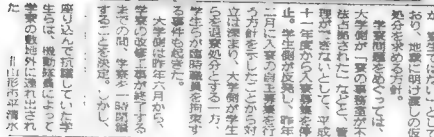 が、寮生ではない」として
おり、地裁に明け渡しの仮
処分を求める方針。
学寮問題をめぐっては、
大学側が「寮の事務室が不
法占拠された」などと、管
理ができないとして、平成
十一年度から入寮募集を停
止。学生側が反発し、昨年
二月に入寮の自主募集を行
う方針を示したことから対
立は深まり、大学側が学生
らを退寮処分とする一方、
学生らが臨時職員を拘束す
る事件も起きた。
大学側は昨年六月から、
学寮の改修工事が終了する
までの間、学寮を一時閉鎖
することを決定。しかし、
座り込んで抗議していた学
生らは、機動隊員によって
学寮の敷地外に連れ出され
た
=山形市平清水